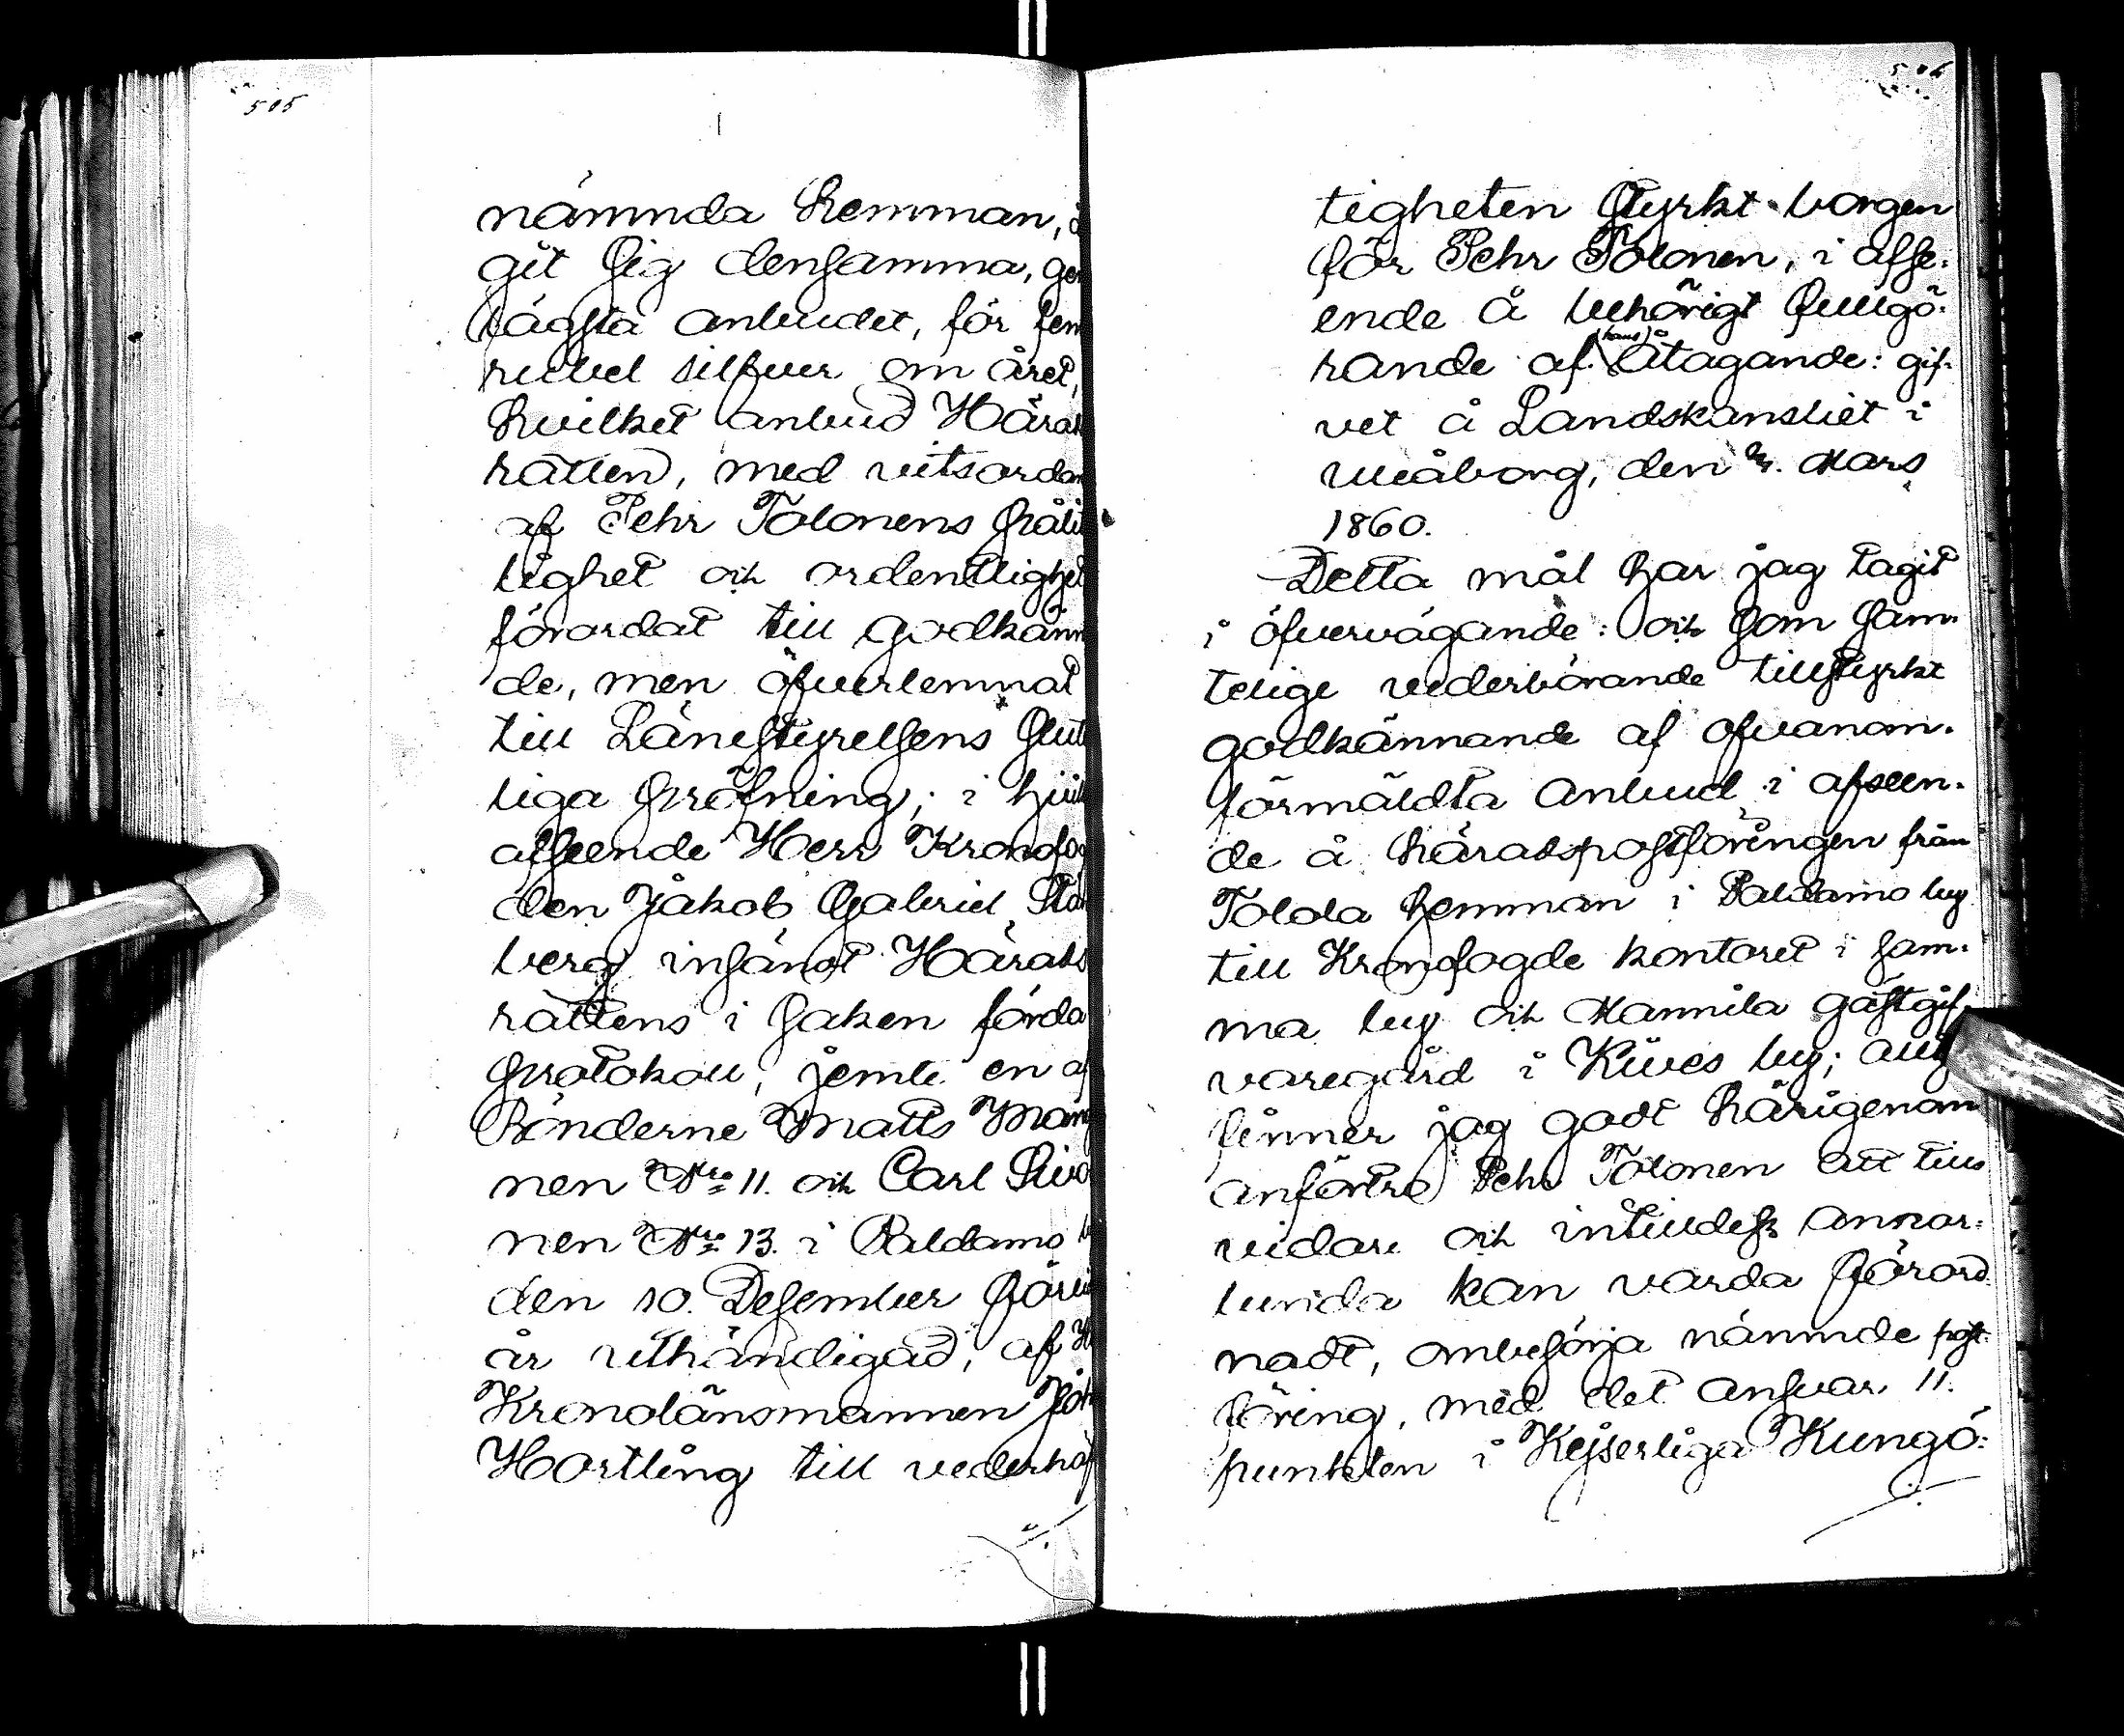 505
nämnda hemman, å
git sig densamma, ge
lägsta anbudet, för fem
rubel silfver om året,
hvilket anbud Härad
rätten, med vitsordan
af Pehr Tolonens pålit
lighet och ordentlighet
förordat till godkänn
de, men öfverlemnat
till Länestyrelsens slut
liga pröfning; i hvil
afseende Herr Kronofog
den Jakob Gabriel Ståh
berg insändt Härads
rättens i saken förda
protokoll, jemte en af
Bönderne Matts Man
nen Nro 11. och Carl Siv
nen Nro 13. i Paldamo
den 10. December förl
år uthändigad, af
Kronolänsmannen Joh
Hortling till vederhäf
506
tigheten styrkt borgen
för Pehr Tolonen, i afse-
ende å behörigt fullgö-
rande af (hans) åtagande: gif-
vet å Landskansliet i
Uleåborg, den Mars
1860.
Detta mål har jag tagit
i öfvervägande: och som sam-
telige vederbörande tillstyrkt
godkännande af ofvanom-
förmäldta anbud i afseen-
de å häradspostföringen från
Tolola hemman i Paldamo by
till Kronofogde kontoret i sam-
ma by och Mannila gästgif-
varegård i Kives by; allt
finner jag godt härigenom
anförtro Pehr Tolonen att tills
vidare och intilldess annor-
lunda kan varda förord-
nadt, ombesörja nämnde post-
föring, med det ansvar 11.
punkten i Kejserliga Kungö-